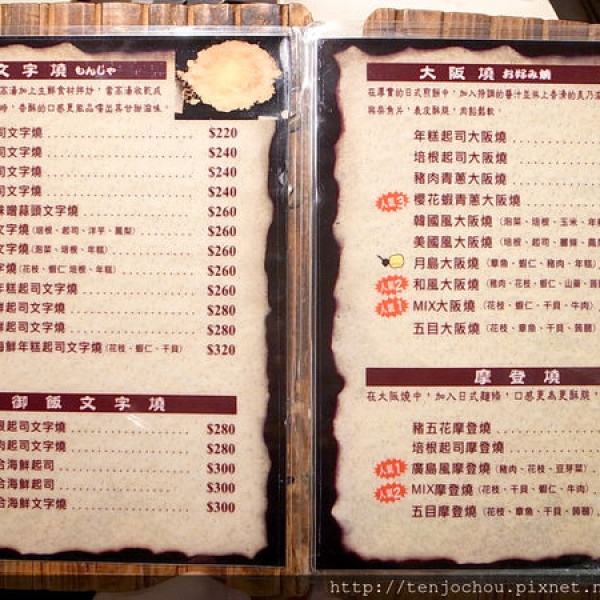 文字燒 もんじゃ
$220
司文字燒 $240
司文字燒 $240
司文字燒 $240
味噌蒜頭文字燒 $260
文字燒(培根、起司、洋芋、鳳梨) $260
文字燒(泡菜、培根、年糕) $260
字燒(花枝、蝦仁 培根、年糕) $260
年糕起司文字燒 $260
鮮起司文字燒 $280
鮮起司文字燒 $280
海鮮年糕起司文字燒(花枝、蝦仁、干貝) $320
御飯文字燒
根起司文字燒 $280
肉起司文字燒 $280
合海鮮起司 $300
合海鮮起司 $300
合海鮮文字燒 $300
大阪燒 お好み燒
年糕起司大阪燒
培根起司大阪燒
豬肉青蔥大阪燒
人氣3 櫻花蝦青蔥大阪燒
韓國風大阪燒(泡菜、培根、玉米、年
美國風大阪燒(培根、起司、
月島大阪燒(章魚、蝦仁、豬肉、年糕)
人氣2 和風大阪燒(豬肉、花枝、蝦仁、山藥、
人氣1 MIX大阪燒(花枝、蝦仁、干貝、牛肉)
五目大阪燒(花枝、章魚、干貝、蒟蒻)
摩登燒
在大阪燒中，加入日式麵條，口感更為更酥脆，
豬五花摩登燒
培根起司摩登燒
人氣1 廣島風摩登燒(豬肉、花枝、豆芽菜)
人氣2 MIX摩登燒(花枝、干貝、蝦仁、牛肉)
五目摩登燒(花枝、章魚、干貝、蒟蒻)
http://tenjochou.pixnet.n